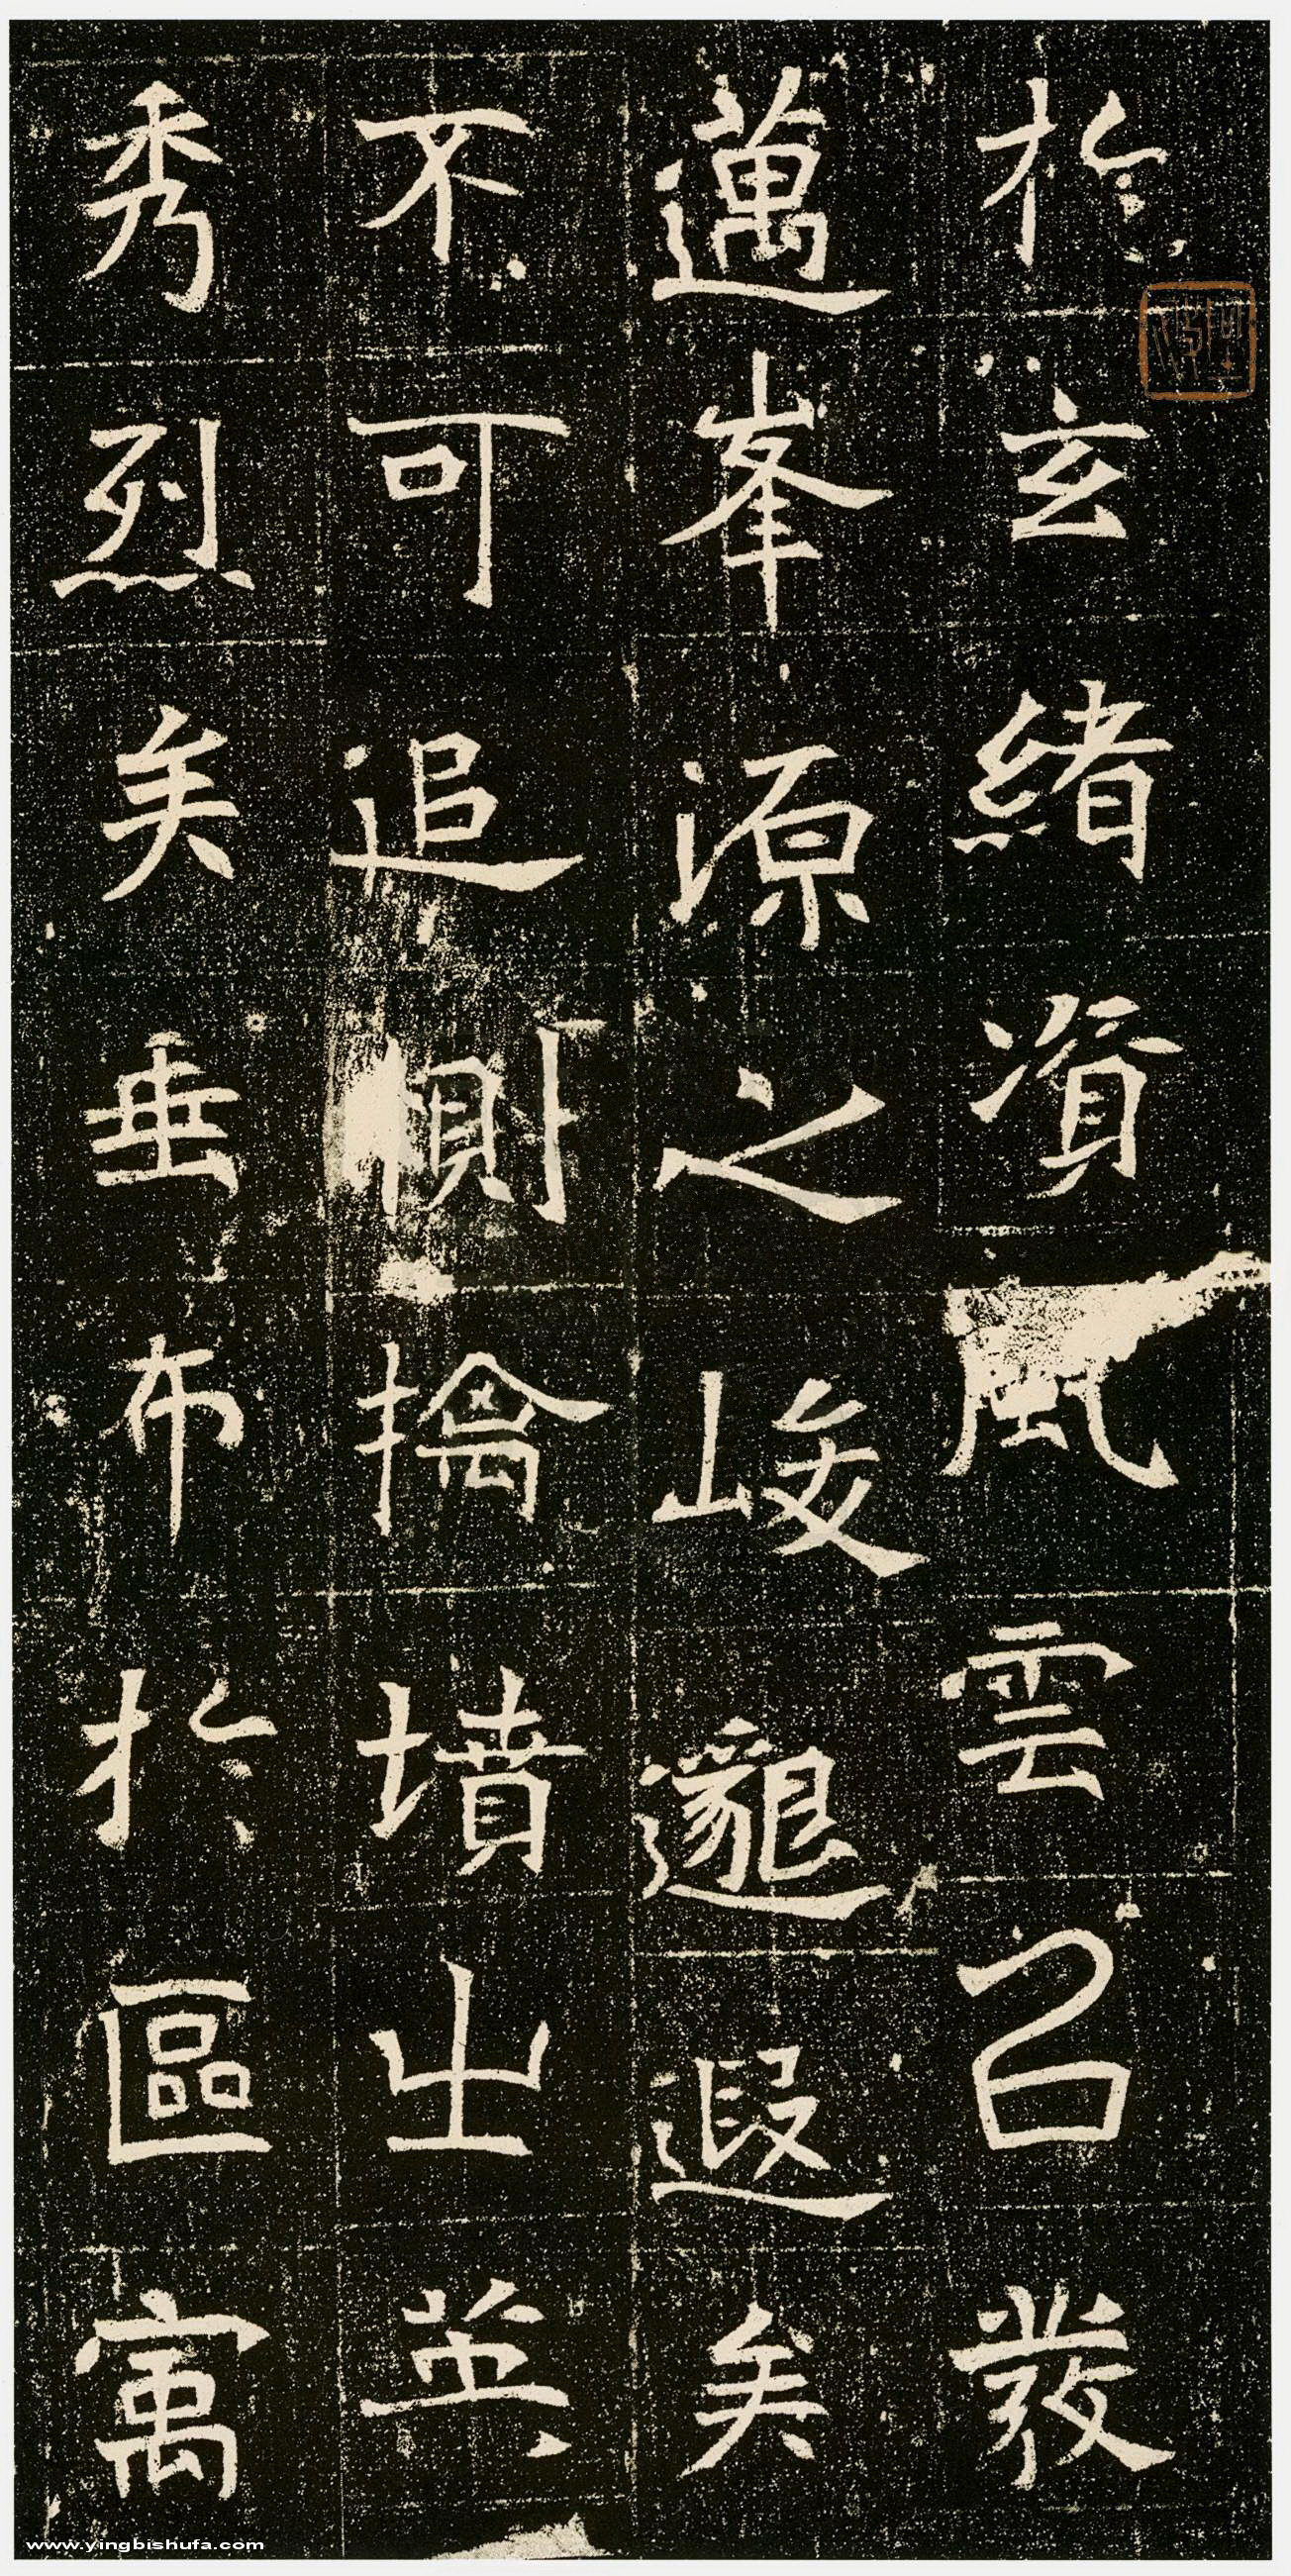 於玄緒資風雲以發
邁峯源之峻邈遐矣
不可追惻擒墳出英
秀烈矣垂布於區寓
www.yingbishufa.com